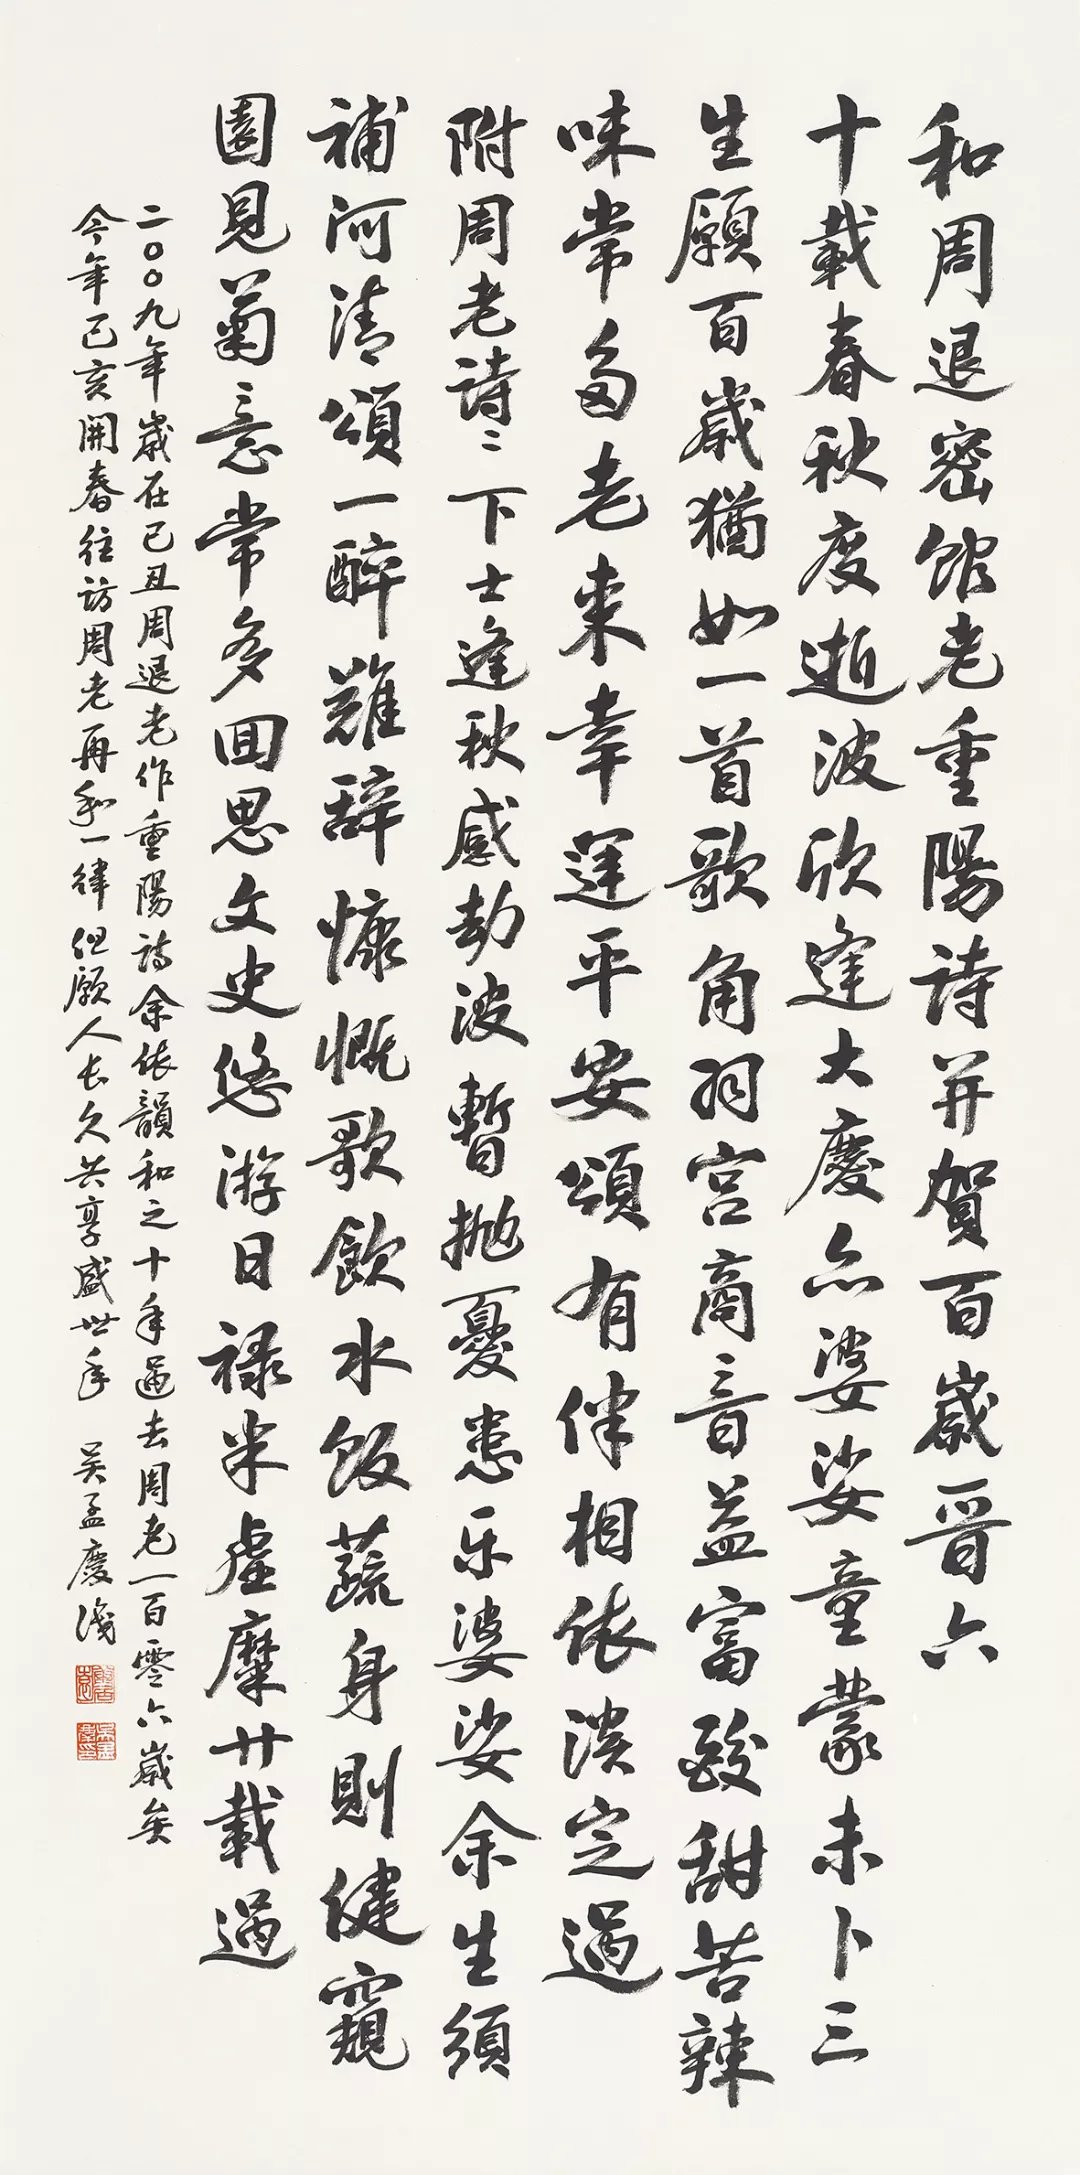 和周退密館老重陽詩并賀百歲晉六
十載春秋度逝波欣逢大慶亦婆娑童蒙未卜三
生願百歲猶如一首歌角羽宮商音益富酸甜苦辣
味常多老來幸運平安頌有伴相依淡定過
附周老詩〻下士逢秋感劫波暫拋憂患乐婆娑余生須
補河清頌一醉難辞慷慨歌飲水飯蔬身則健窺
園見菊意常多回思文史悠游日祿米虛糜廿載過
二〇〇九年歲在己丑周退老作重陽詩余依韻和之十年過去周老一百零六歲矣
今年己亥開春往訪周老再和一律但願人長久共享盛世年 吴孟慶識